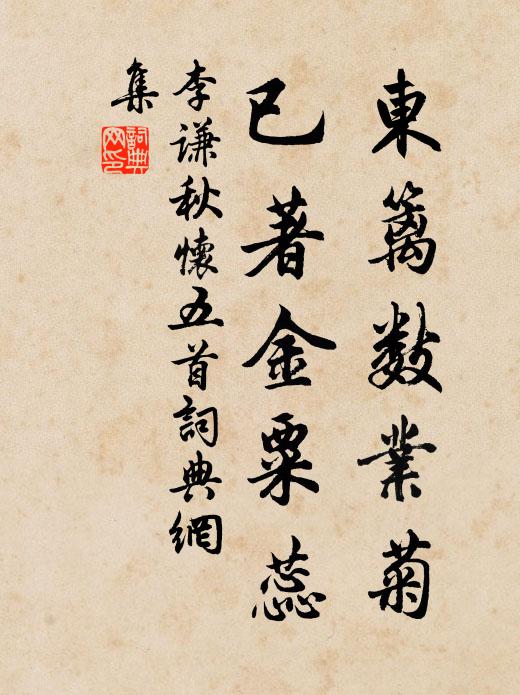 東籬数業菊
已著金粟蕊
李谦秋懷五首詞典網
集
詞典网印